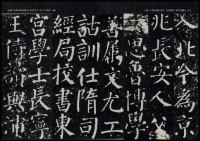 入北今為京
兆長安人父
思魯博學
善屬文尤工
詁訓仕隋司
經局校書東
宮學士長寧
王侍讀與沛